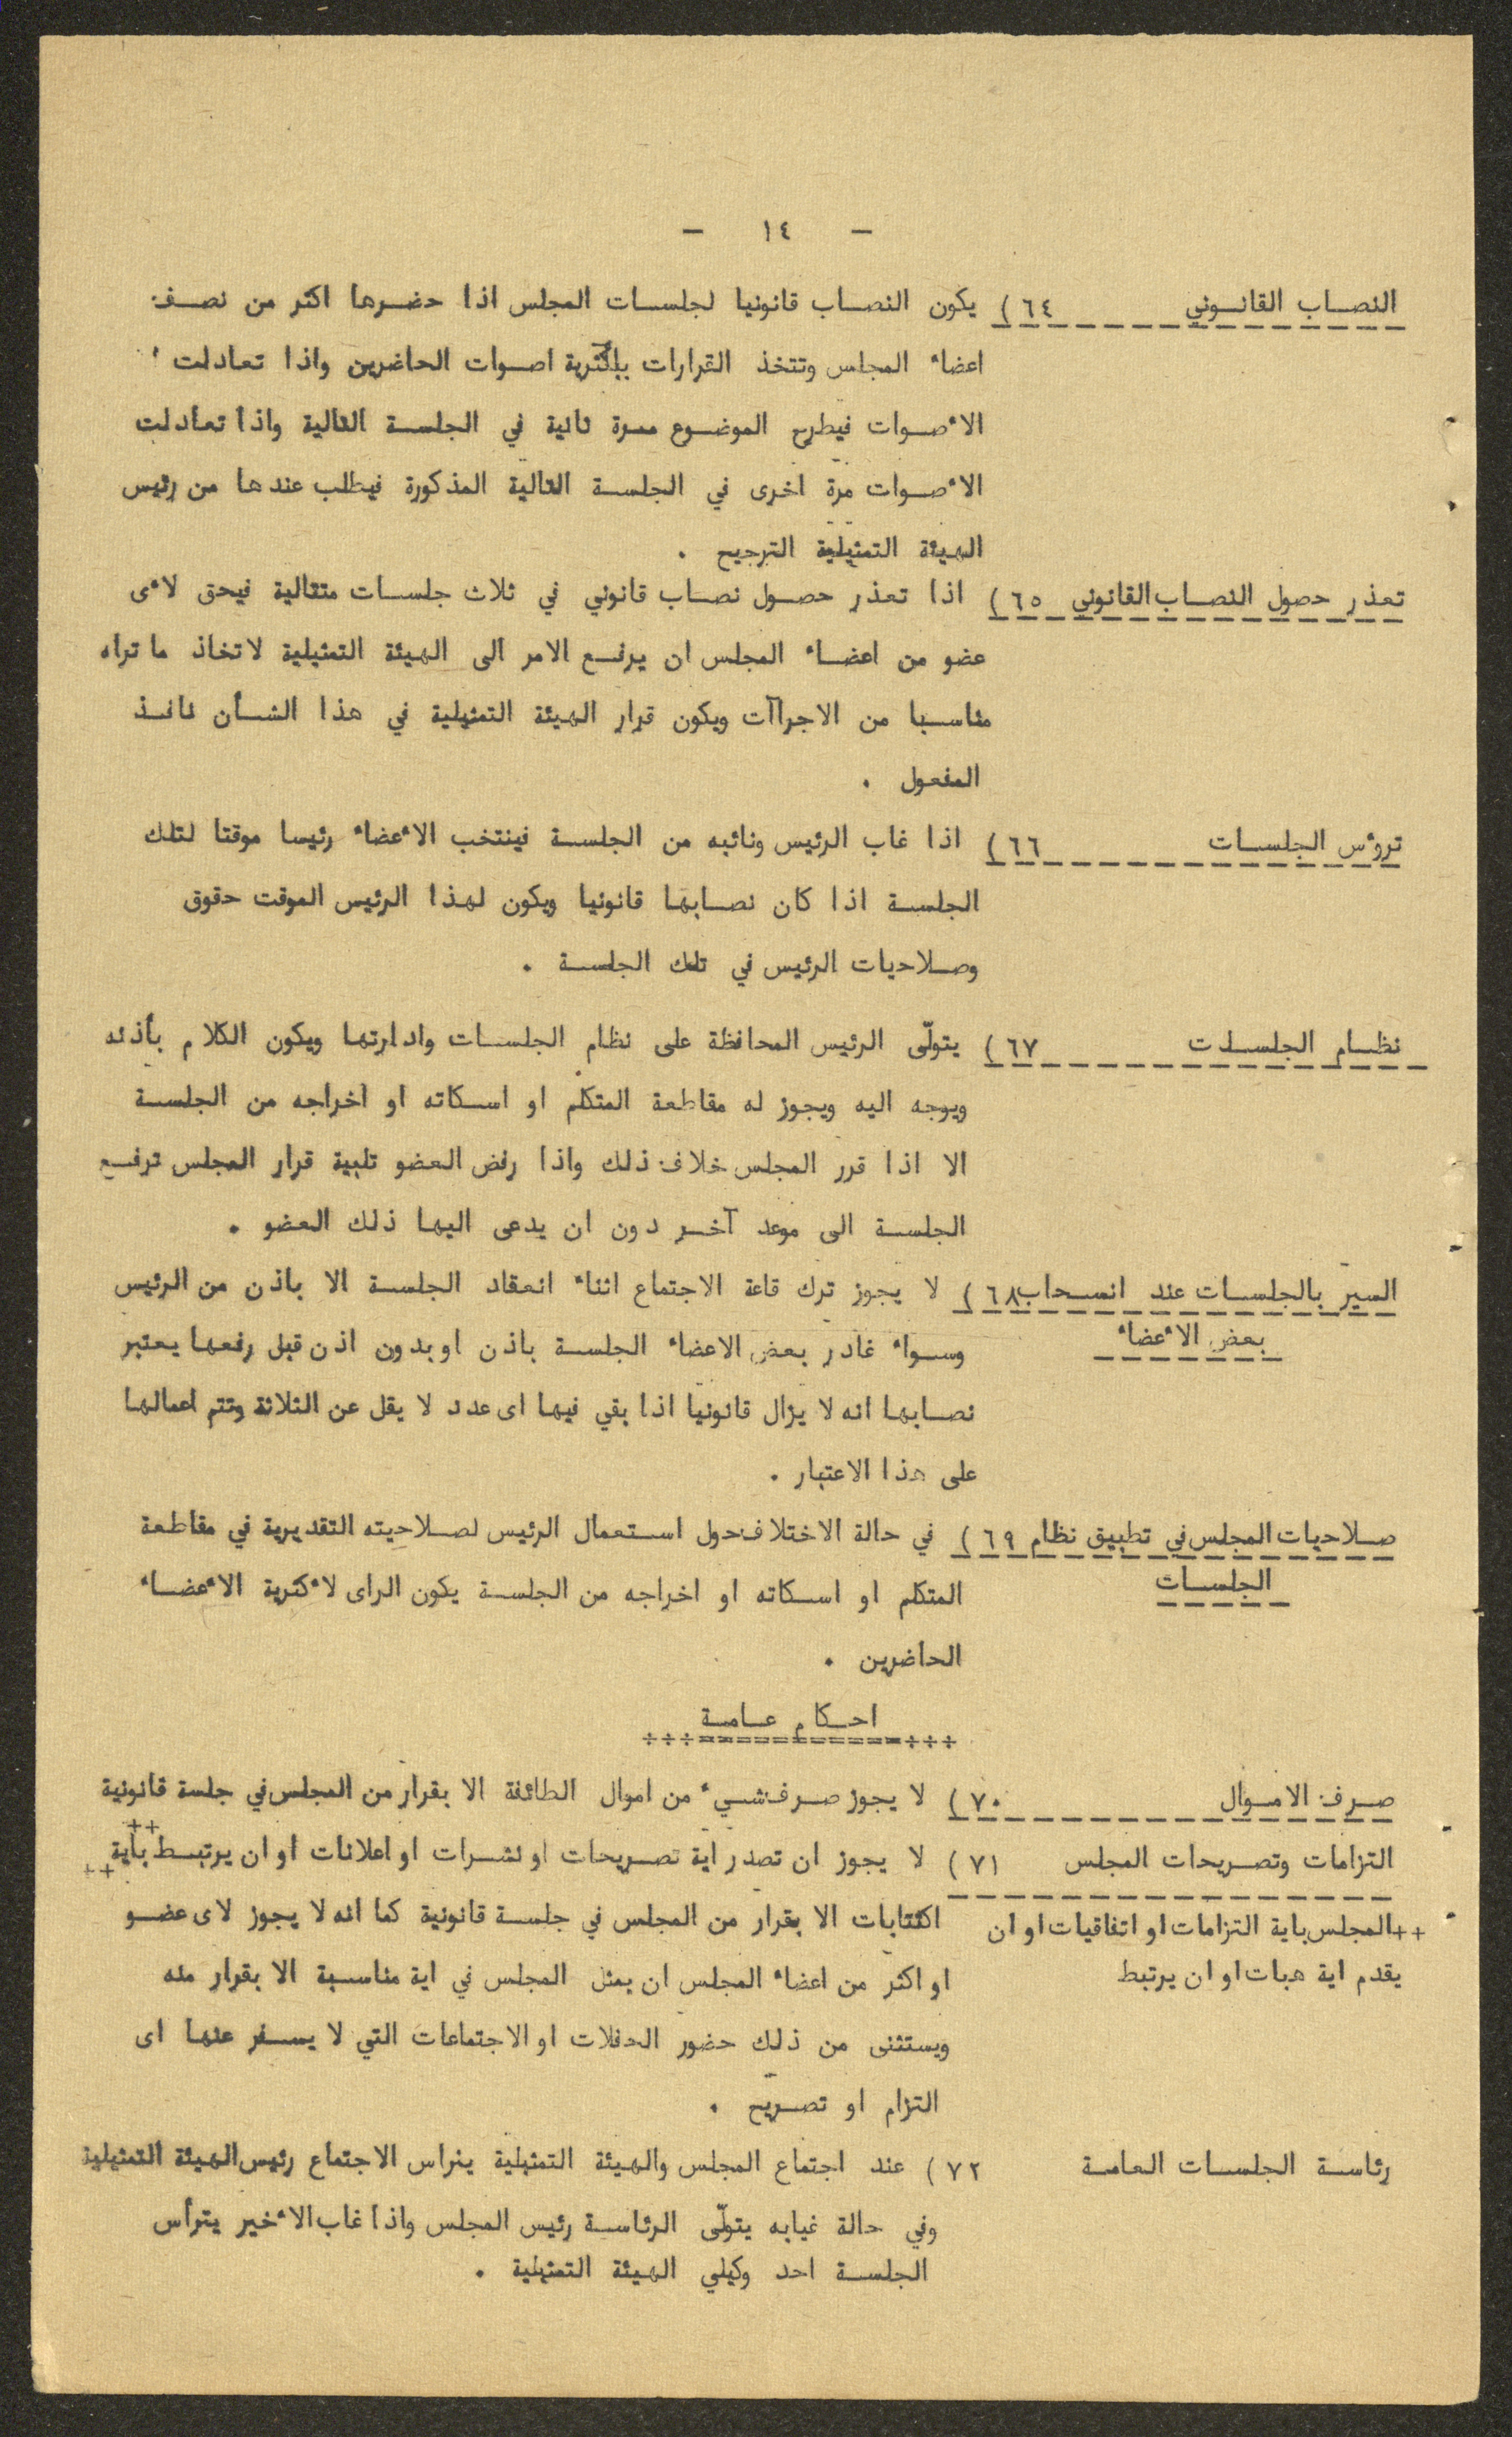 - ١٤ -
النصاب القانوني ٦٤) يكون النصاب قانونيا لجلسات المجلس اذا حضرها اكثر من نصف
اعضاء المجلس وتتخذ القرارات باكثرية اصوات الحاضرين واذا تعادلت
الأصوات فيطرح الموضوع مرة ثانية في الجلسة التالية واذا تعادلت
الأصوات مرة اخرى في الجلسة التالية المذكورة فيطلب عندها من رئيس
الهيئة التمثيلية الترجيح .
تعذر حصول النصاب القانوني ٦٥) اذا تعذر حصول نصاب قانوني في ثلاث جلسات متتالية فيحق لأى
عضو من اعضاء المجلس ان يرفع الامر الى الهيئة التمثيلية لاتخاذ ما تراه
مناسبا من الاجراآت ويكون قرار الهيئة التمثيلية في هذا الشأن نافذ
المفعول .
ترؤس الجلسات ٦٦) اذا غاب الرئيس ونائبه من الجلسة فينتخب الأعضاء رئيسا موقتا لتلك
الجلسة اذا كان نصابها قانونيا ويكون لهذا الرئيس الموقت حقوق
وصلاحيات الرئيس في تلك الجلسة .
نظام الجلسات ٦٧) يتولّى الرئيس المحافظة على نظام الجلسات وادارتها ويكون الكلام بأذنه
ويوجه اليه ويجوز له مقاطعة المتكلم او اسكاته او اخراجه من الجلسة
الا اذا قرر المجلس خلاف ذلك واذا رفض العضو تلبية قرار المجلس ترفع
الجلسة الى موعد آخر دون ان يدعى اليها ذلك العضو .
السير بالجلسات عند انسحاب ٦٨) لا يجوز ترك قاعة الاجتماع اثناء انعقاد الجلسة الا باذن من الرئيس
بعض الأعضاء وسواء غادر بعض الاعضاء الجلسة باذن او بدون اذن قبل رفعها يعتبر
نصابها انه لا يزال قانونيا اذا بقي فيها اى عدد لا يقل عن الثلاثة وتتم اعمالها
على هذا الاعتبار .
صلاحيات المجلس في تطبيق نظام ٦٩) في حالة الاختلاف حول استعمال الرئيس لصلاحيته التقديرية في مقاطعة
الجلسات المتكلم او اسكاته او اخراجه من الجلسة يكون الراى لأكثرية الأعضاء
الحاضرين .
احكام عامة
+++===========+++
صرف الاموال ٧٠) لا يجوز صرف شيء من اموال الطائفة الا بقرار من المجلس في جلسة قانونية
التزامات وتصريحات المجلس ٧١) لا يجوز ان تصدر اية تصريحات او نشرات او اعلانات او ان يرتبط ++ بأية ++
++المجلس باية التزامات او اتفاقيات او ان اكتتابات الا بقرار من المجلس في جلسة قانونية كما انه لا يجوز لاى عضو
يقدم اية هبات او ان يرتبط او اكثر من اعضاء المجلس ان يمثل المجلس في اية مناسبة الا بقرار منه
ويستثنى من ذلك حضور الحفلات او الاجتماعات التي لا يسفر عنها اى
التزام او تصريح .
رئاسة الجلسات العامة ٧٢) عند اجتماع المجلس والهيئة التمثيلية يتراس الاجتماع رئيس الهيئة التمثيلية
وفي حالة غيابه يتولّى الرئاسة رئيس المجلس واذا غاب الأخير يترأس
الجلسة احد وكيلي الهيئة التمثيلية .